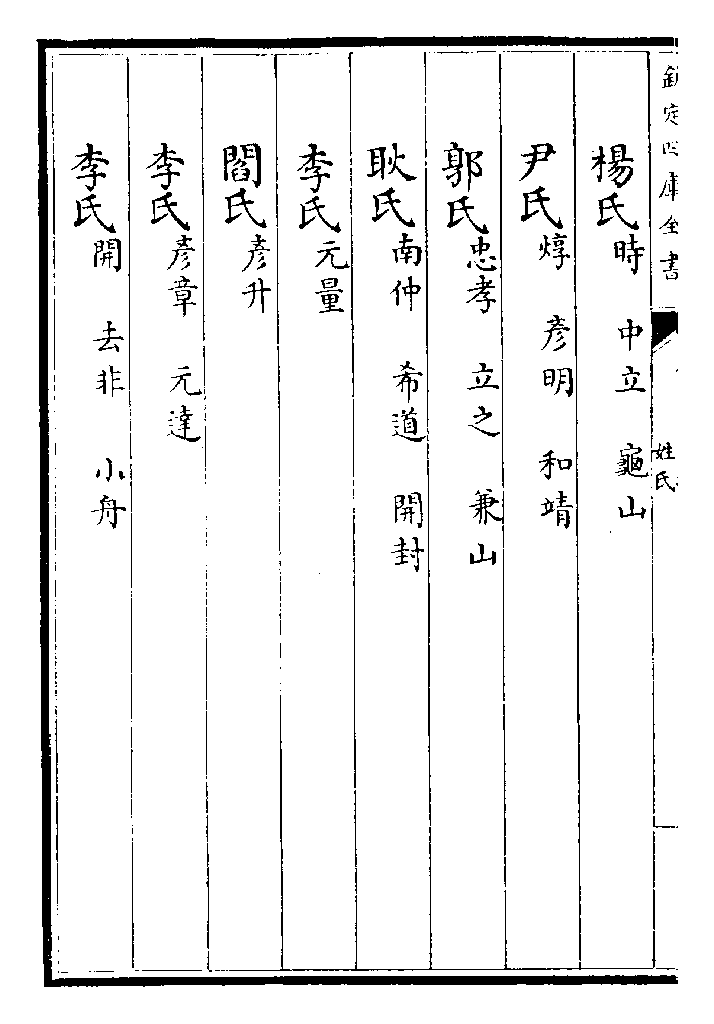 欽定四庫全書
姓氏
楊氏時 中立 龜山
尹氏焞 彥明 和靖
郭氏忠孝 立之 兼山
耿氏南仲 希道 開封
李氏元量
閻氏彥升
李氏彥章 元達
李氏開 去非 小舟